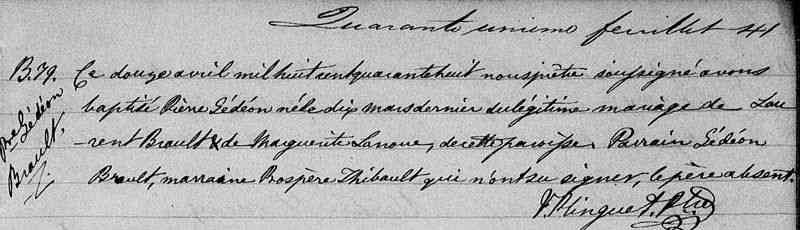 Quarante unième feuillet 41
B.79. Ce douze avril mil huit cent quarante huit nous prêtre soussigné avons
Pre Gédéon baptisé Pière Gédéon né le dix mars dernier du légitime mariage de Lau
Brault, -rent Brault & de Marguerite Lanoue, de cette paroisse. Parrain Gédéon
Brault, marraine Prospère Thibault qui n'ont su signer, le père absent.
V. Plinguet. Ptre